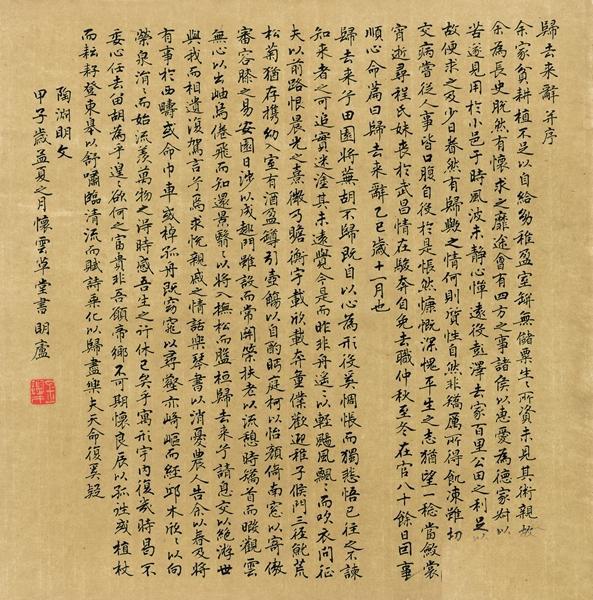 歸去來辭并序
余家貧耕植不足以自給幼稚盈室缾無儲粟生〻所資未見其術親故
余為長吏脫然有懷求之靡途會有四方之事諸侯以惠愛為德家叔以
苦遂見用於小邑于時風波未靜心憚遠役彭澤去家百里公田之利足以
故便求之及少日眷然有歸歟之情何則質性自然非矯厲所得飢凍雖切
交病嘗從人事皆口腹自役於是悵然慷慨深愧平生之志猶望一稔當斂裳
宵逝尋程氏妹喪於武昌情在駿奔自免去職仲秋至冬在官八十餘日因事
順心命篇曰歸去來辭乙巳歲十一月也
歸去來兮田園將蕪胡不歸既自以心為形役奚惆悵而獨悲悟已往之不諫
知來者之可追實迷塗其未遠覺今是而昨非舟遥〻以輕颺風飄〻而吹衣問征
夫以前路恨晨光之熹微乃瞻衡宇載欣載奔童僕歡迎稚子候門三徑就荒
松菊猶存攜幼入室有酒盈罇引壺觴以自酌眄庭柯以怡顏倚南窓以寄傲
審容膝之易安園日涉以成趣門雖設而常關策扶老以流憩時矯首而遐觀雲
無心以出岫鳥倦飛而知還景翳〻以將入撫松而盤桓歸去來兮請息交以絕游世
與我而相遺復駕言兮焉求悅親戚之情話樂琴書以消憂農人告余以春及將
有事於西疇或命巾車或棹孤舟既窈窕以尋壑亦崎嶇而經邱木欣〻以向
榮泉涓〻而始流羨萬物之得時感吾生之行休已矣乎寓形宇內復幾時曷不
委心任去留胡為乎遑〻欲何之富貴非吾願帝鄉不可期懷良辰以孤往或植杖
而耘耔登東皋以舒嘯臨清流而賦詩乘化以歸盡樂夫天命復奚疑
陶淵明文
甲子歲孟夏之月懷雲草堂書明盧